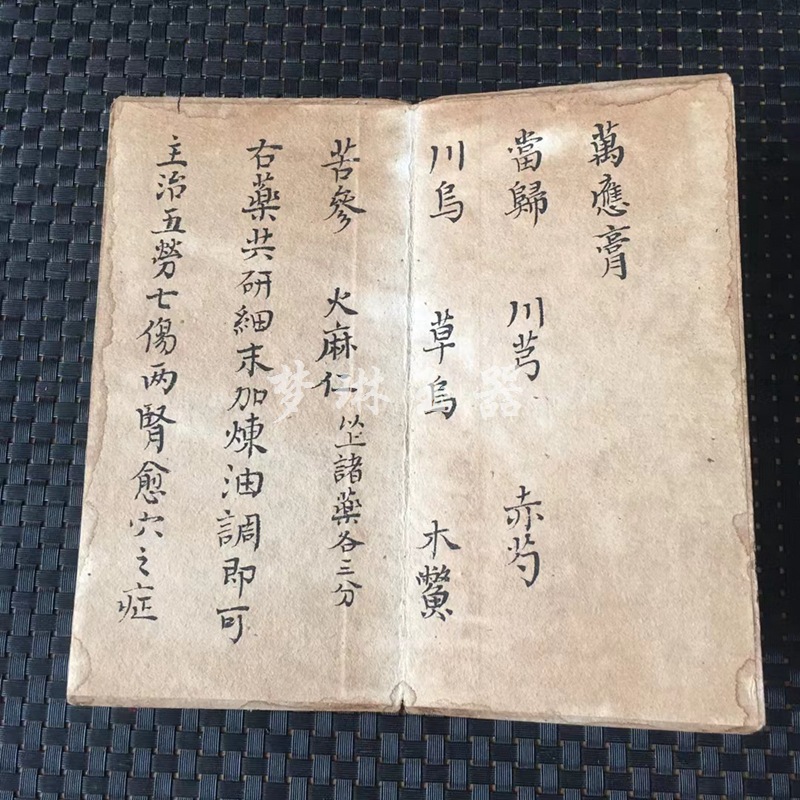 萬應膏
當歸 川芎 赤芍
川烏 草烏 木鱉
苦參 火麻仁 以上諸藥各三分
右藥共研細末加煉油調即可
主治五勞七傷两腎愈穴之症
梦琳 器